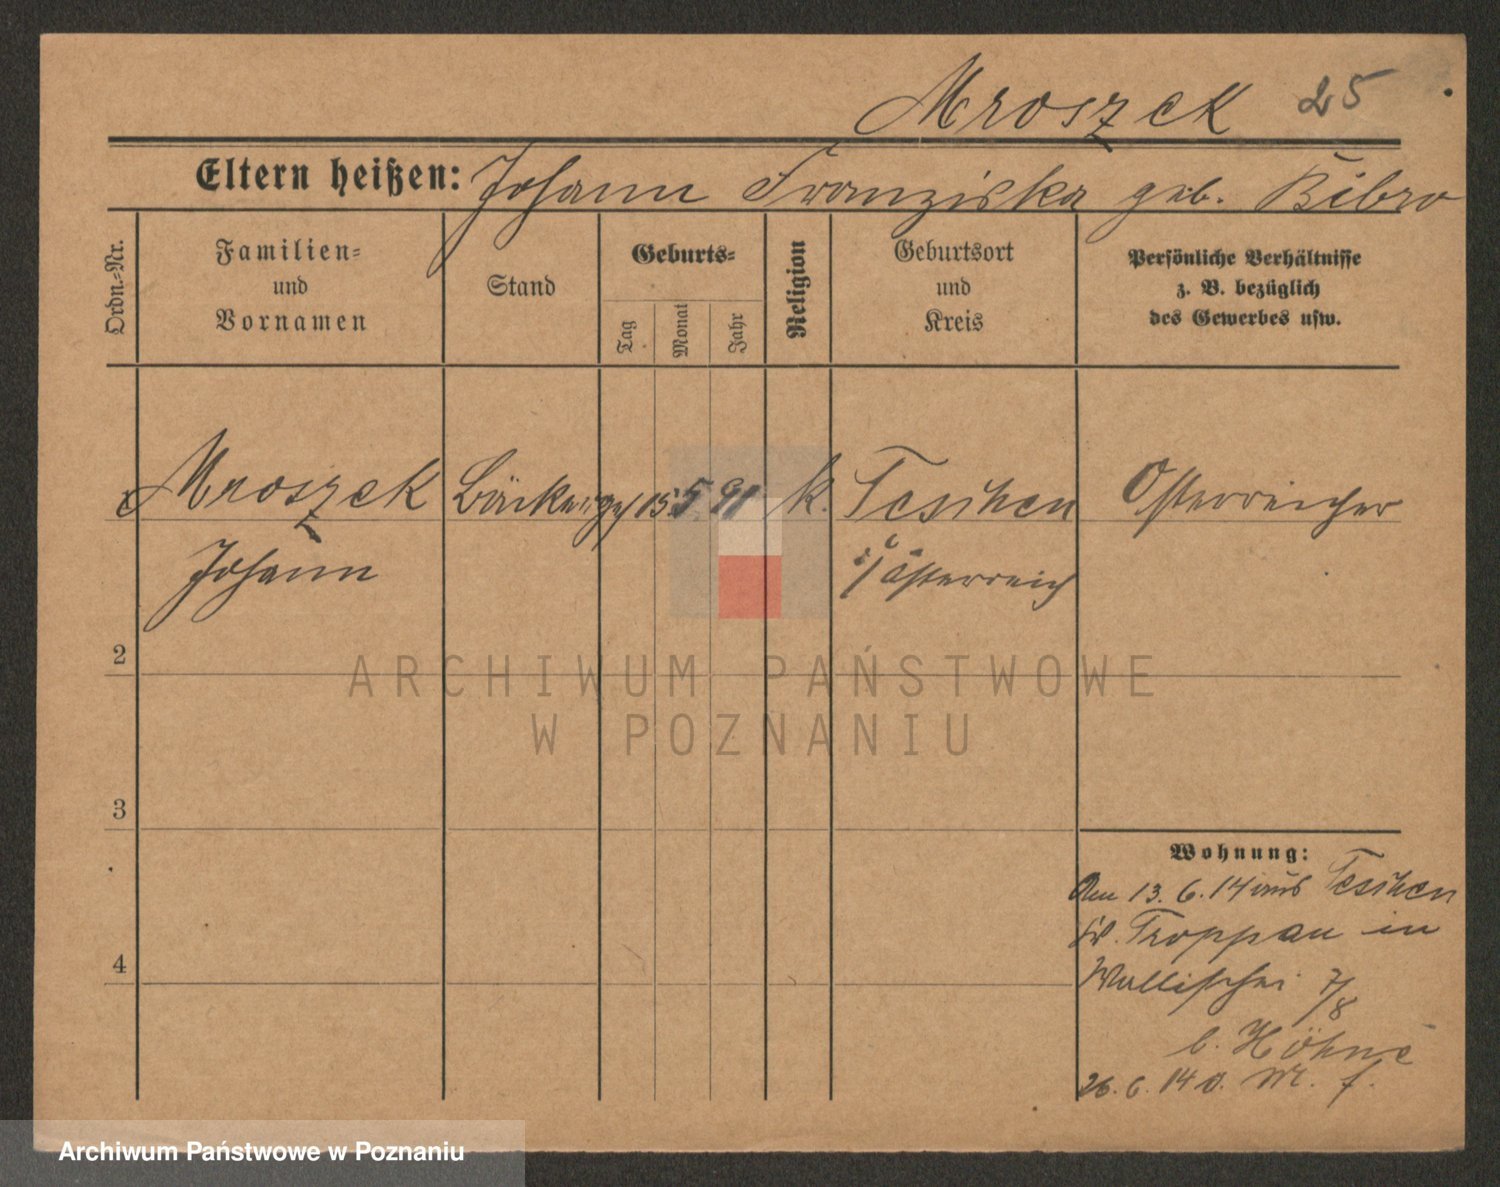 Mroszek 25
Eltern heißen: Johann Franziska geb. Bibro
Ordn.-Nr.
Familien-
und
Vornamen
Stand
Geburts-
Tag
Monat
Jahr
Religion
Geburtsort
und
Kreis
Persönliche Verhältnisse
z. B. bezüglich
des Gewerbes usw.
Mroszek Bäckerges 15. 5. 91 k. Teschen Österreicher
Johann i/Österreich
2
3
4
Wohnung:
Am 13. 6. 14 aus Teschen
Troppau in
Wallischei 7/8
b. Höhne
26. 6. 14
ARCHIWUM PAŃSTWOWE
W POZNANIU
Archiwum Państwowe w Poznaniu